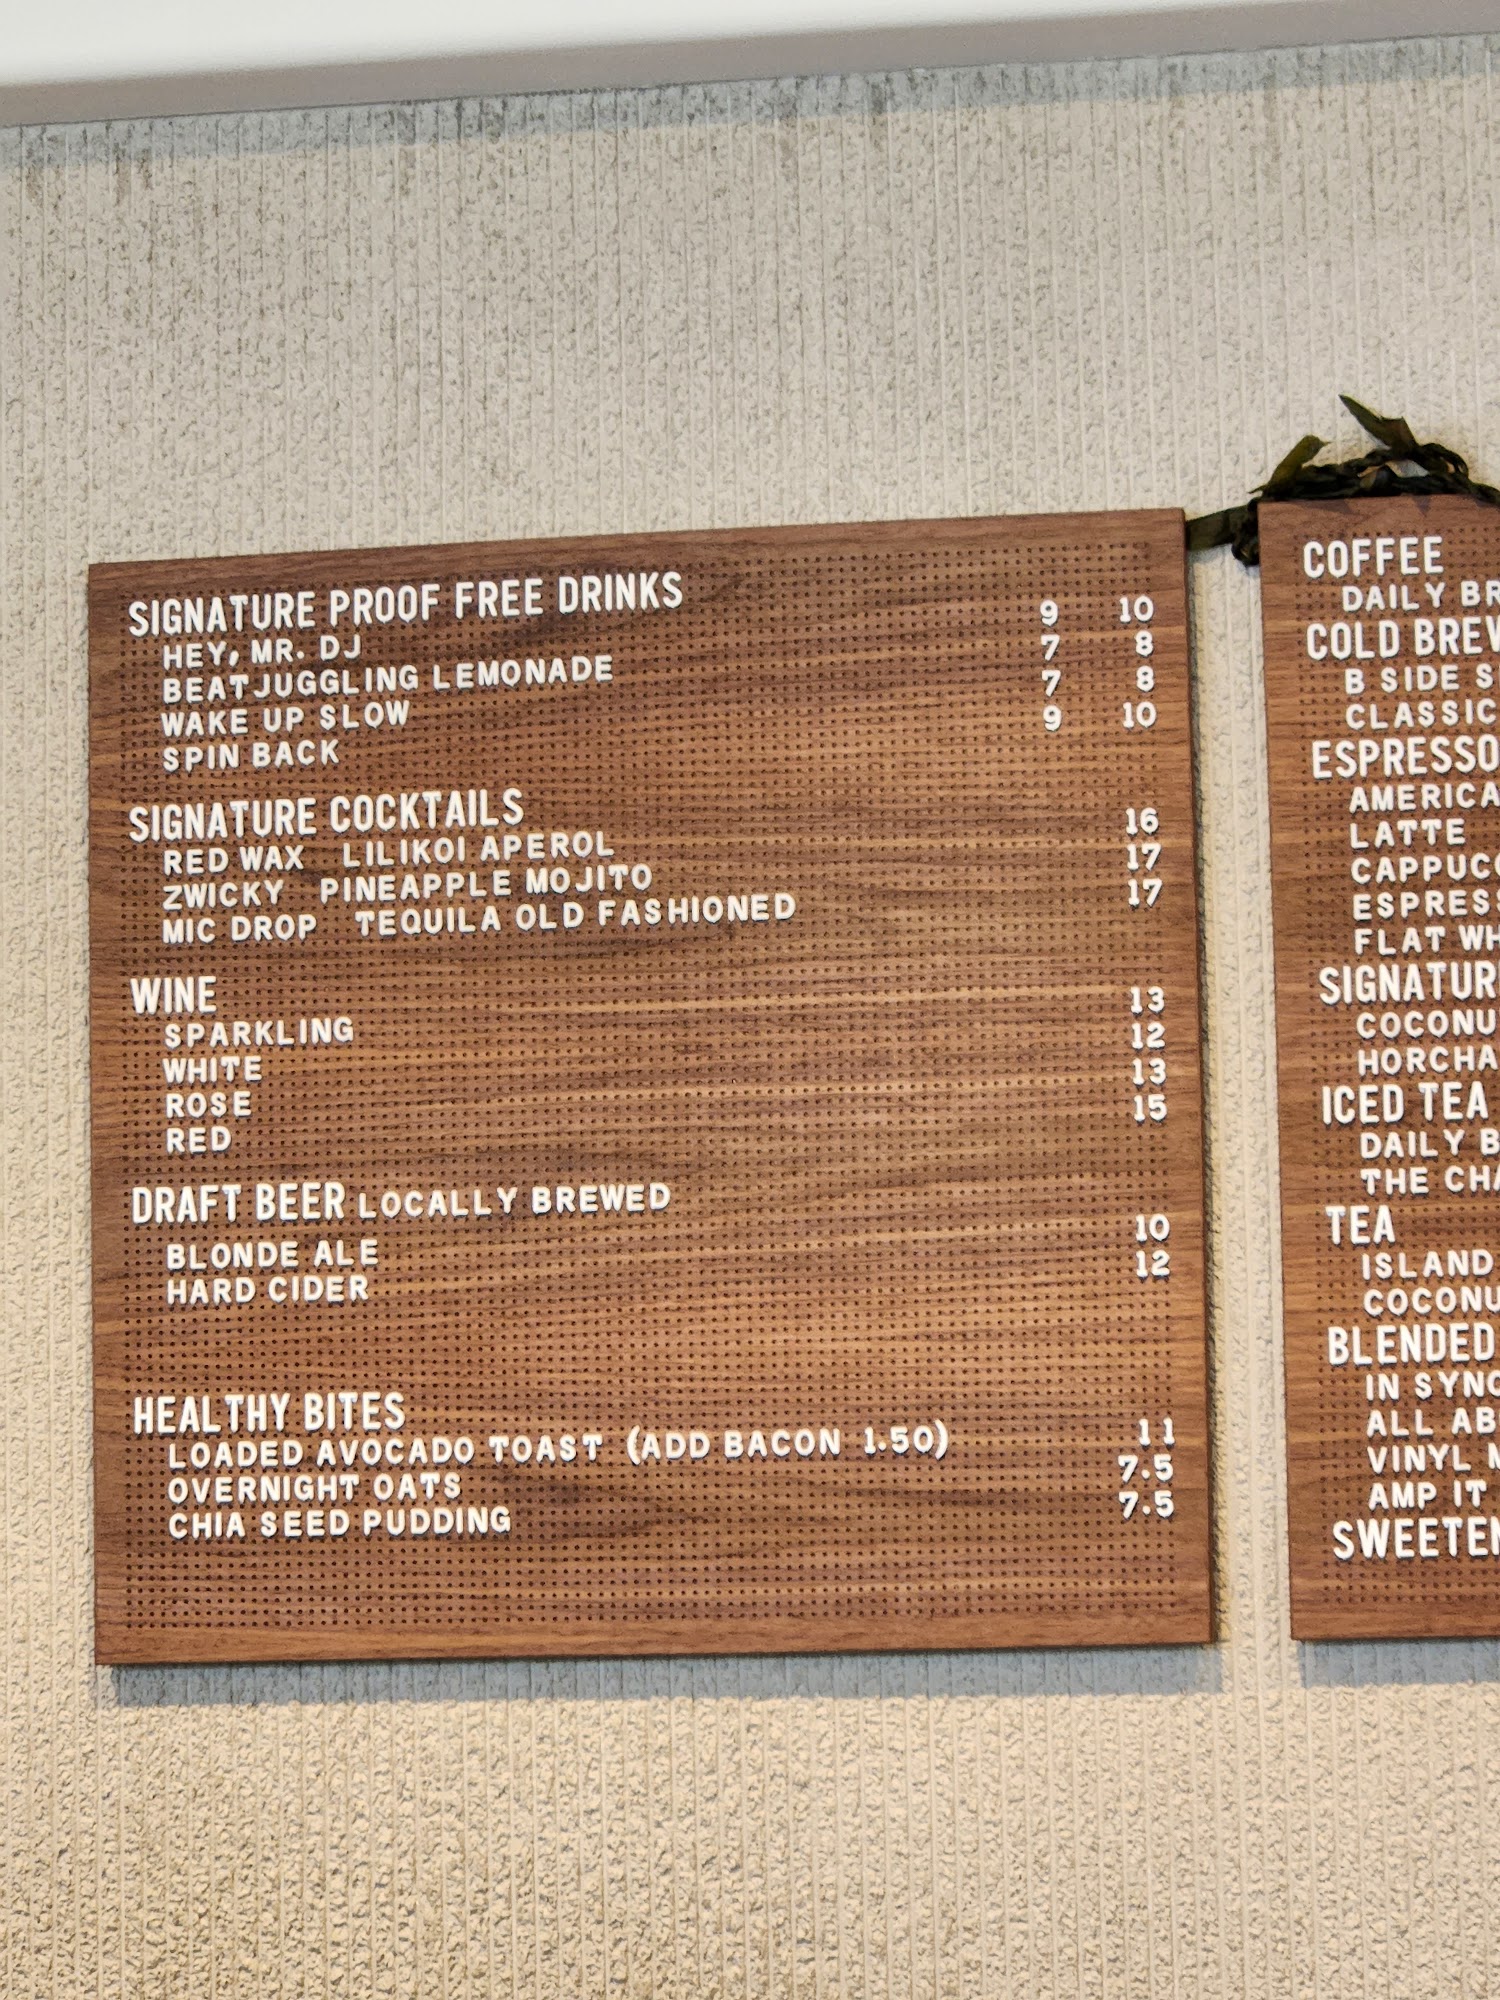 SIGNATURE PROOF FREE DRINKS
HEY, MR. DJ 9 10
BEATJUGGLING LEMONADE 7 8
WAKE UP SLOW 7 8
SPIN BACK 9 10
SIGNATURE COCKTAILS
RED WAX LILIKOI APEROL 16
ZWICKY PINEAPPLE MOJITO 17
MIC DROP TEQUILA OLD FASHIONED 17
WINE
SPARKLING 13
WHITE 12
ROSE 13
RED 15
DRAFT BEER LOCALLY BREWED
BLONDE ALE 10
HARD CIDER 12
HEALTHY BITES
LOADED AVOCADO TOAST (ADD BACON 1.50) 11
OVERNIGHT OATS 7.5
CHIA SEED PUDDING 7.5
COFFEE
DAILY BR
COLD BREW
B SIDE S
CLASSIC
ESPRESSO
AMERICA
LATTE
CAPPUCC
ESPRESS
FLAT WH
SIGNATUR
COCONU
HORCHA
ICED TEA
DAILY B
THE CHA
TEA
ISLAND
COCONU
BLENDED
IN SYNC
ALL AB
VINYL M
AMP IT
SWEETEN